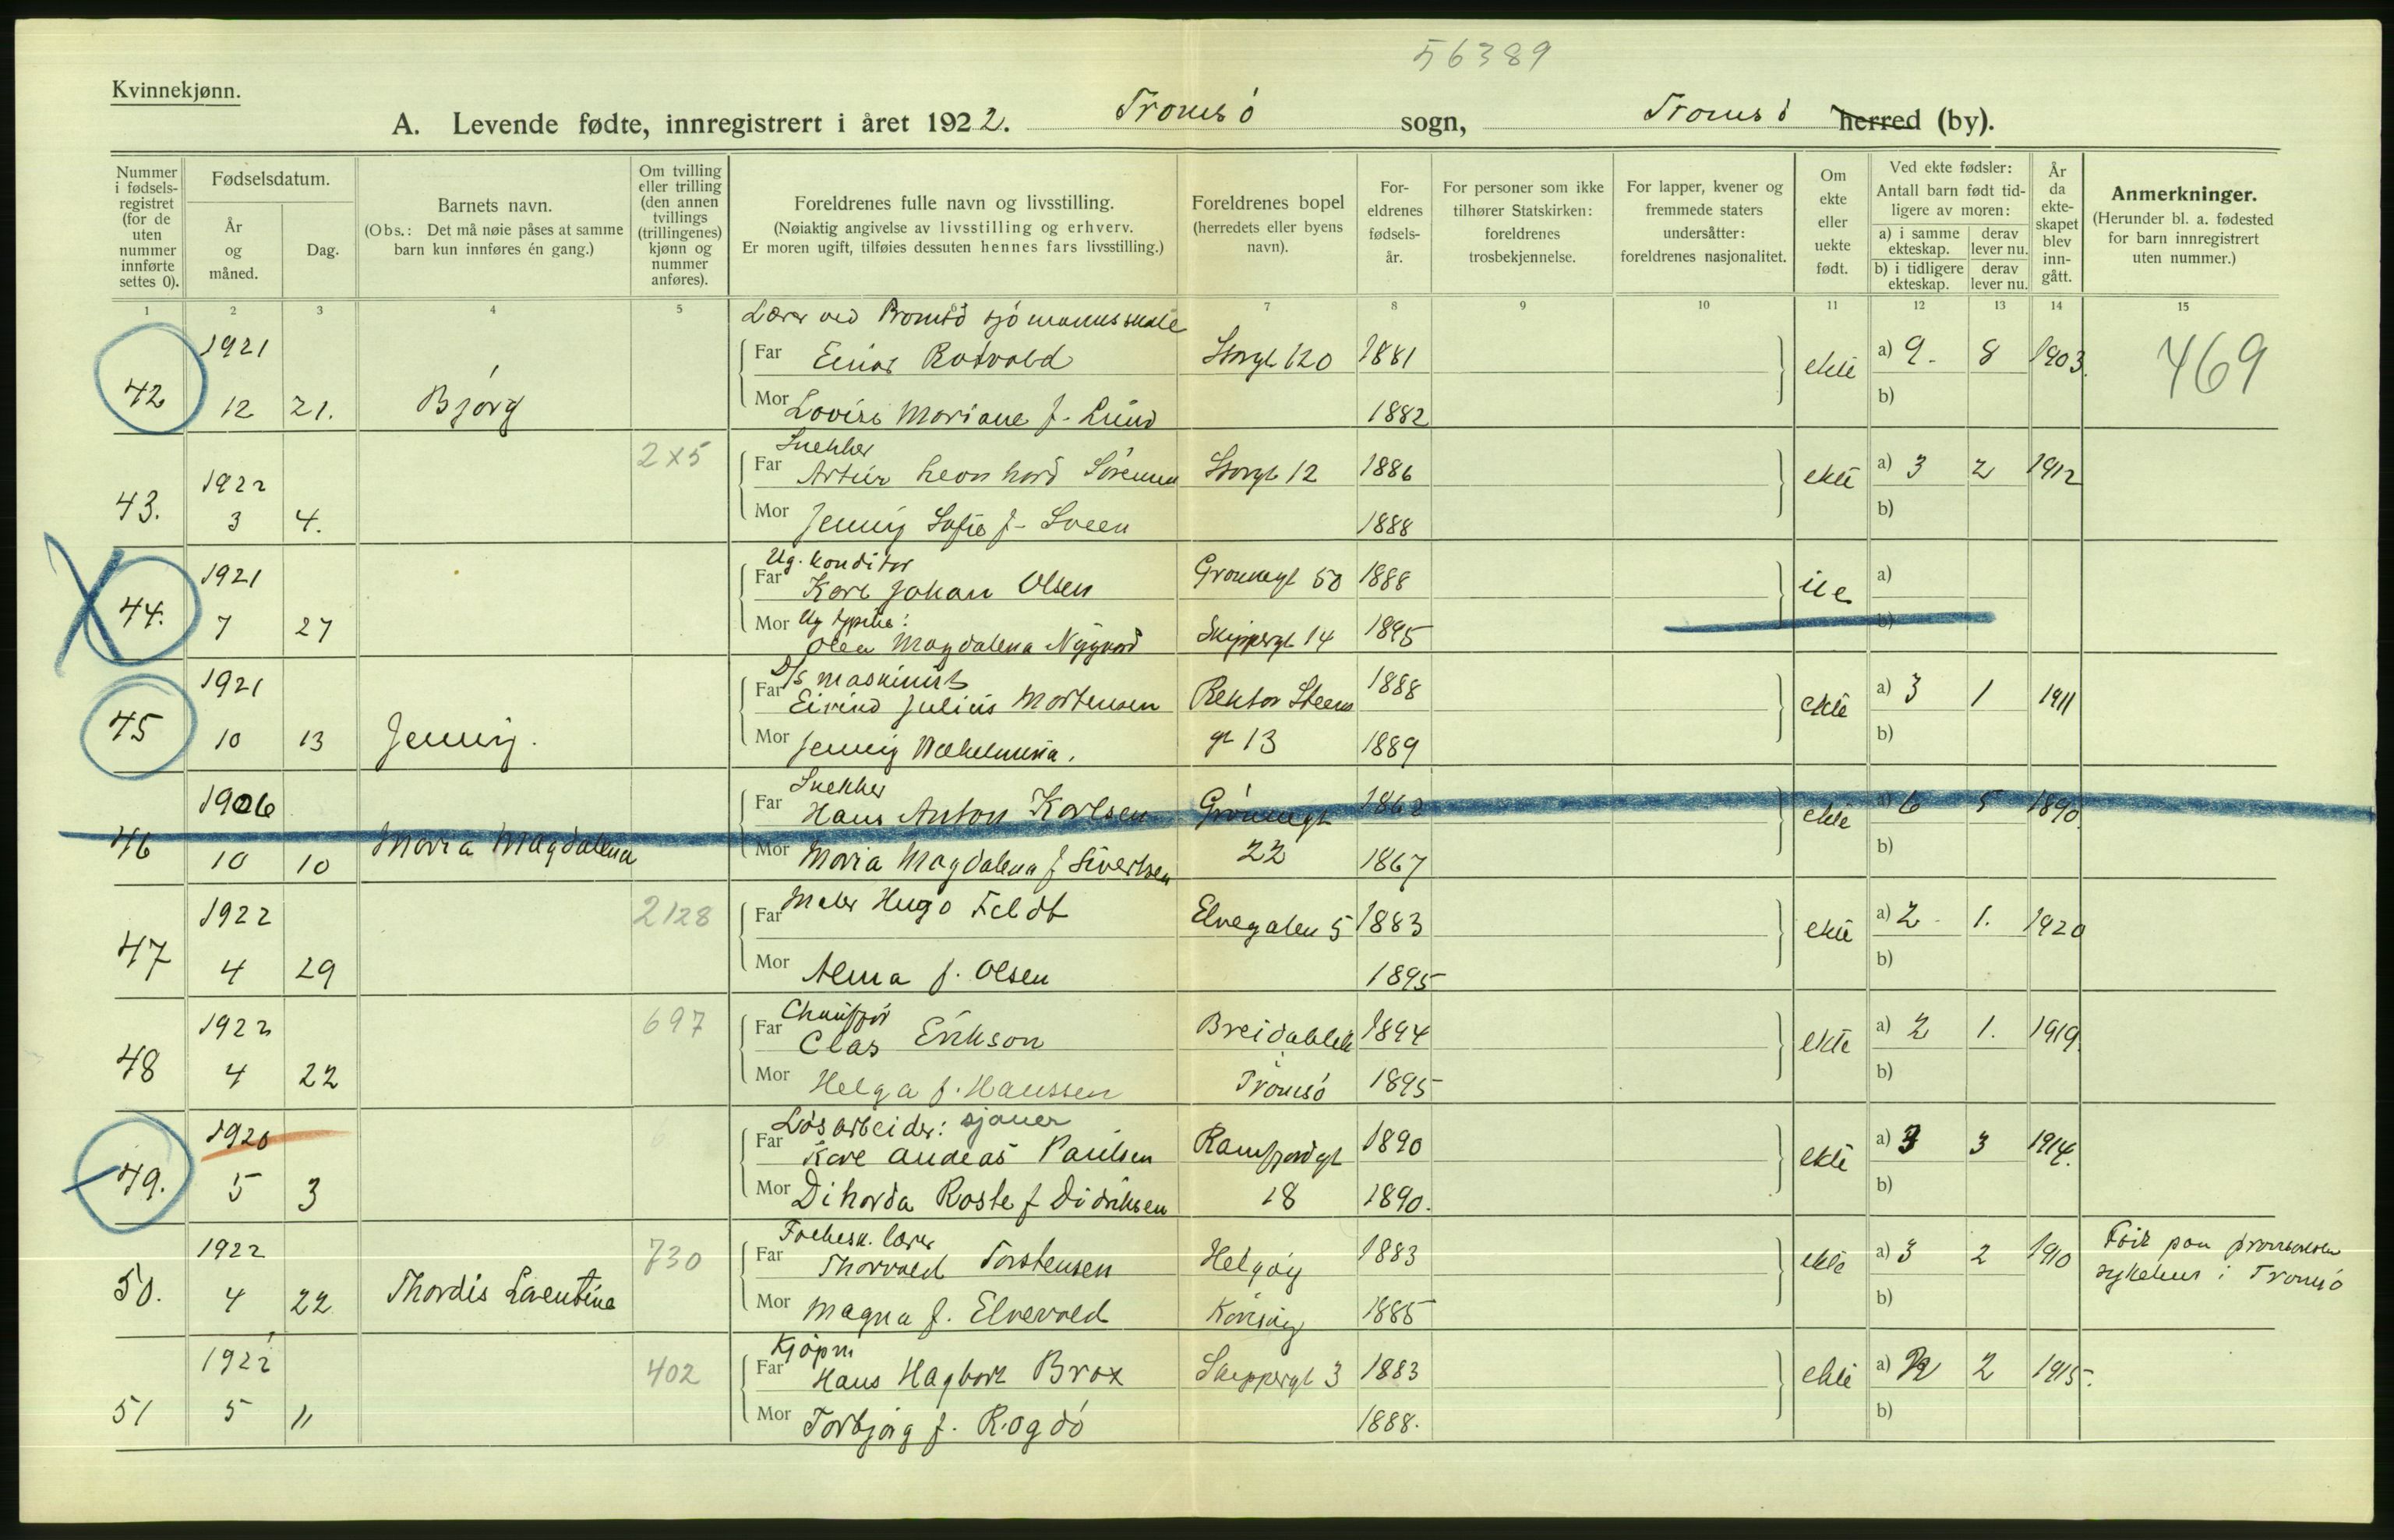 56389
Kvinnekjønn.
A. Levende fødte, innregistrert i året 1922. Tromsø sogn, Tromsø herred (by).
Nummer i fødsels-registret (for de uten nummer innførte settes 0).
Fødselsdatum.
År og måned.
Dag.
Barnets navn.
(Obs.: Det må nøie påses at samme barn kun innføres én gang.)
Om tvilling eller trilling (den annen tvillings (trillingenes) kjønn og nummer anføres).
Foreldrenes fulle navn og livsstilling.
(Nøiaktig angivelse av livsstilling og erhverv.
Er moren ugift, tilføies dessuten hennes fars livsstilling.)
Foreldrenes bopel (herredets eller byens navn).
For-eldrenes fødsels-år.
For personer som ikke tilhører Statskirken: foreldrenes trosbekjennelse.
For lapper, kvener og fremmede staters undersåtter: foreldrenes nasjonalitet.
Om ekte eller uekte født.
Ved ekte fødsler:
Antall barn født tid-ligere av moren:
a) i samme ekteskap.
derav lever nu.
b) i tidligere ekteskap.
derav lever nu.
År da ekte-skapet blev inn-gått.
Anmerkninger.
(Herunder bl. a. fødested for barn innregistrert uten nummer.)
1 2 3 4 5 6 7 8 9 10 11 12 13 14 15
Lærer ved Tromsø sjömannsskole
1921 Far Einar Rotvold Storgt 120 1881 ekte a) 9. 8 1903. 469
42 12 21. Bjørg Mor Lovise Mariane f. Lund 1882 b)
2x5 Snekker
1922 Far Artur Leonhard Sörensen Storgt 12 1886 ekte a) 3 2 1912
43. 3 4. Mor Jenny Sofie f. Sveen 1888 b)
Ug. konditor
1921 Far Karl Johan Olsen Grønnegt 50 1888 ue a)
44. 7 27 Mor Ug
Olea Magdalena Skippergt 14 1895 b)
D/s maskinist
1921 Far Eivind Julius Mortensen Rektor Steens 1888 ekte a) 3 1 1911
45 10 13 Jenny. Mor Jenny gt 13 1889 b)
Snekker
1906 Far Hans Anton Karlsen Grönnegt 1862 ekte a) 6 5 1890.
46 10 10 Maria Magdalena Mor Maria Magdalena f Sivertsen 22 1867 b)
1922 2128 Far Maler Hugo Feldt Elvegaten 5 1883 ekte a) 2 1. 1920
47 4 29 Mor Alma f. Olsen 1895 b)
Chauffør
1922 697 Far Clas Erikson Breidablik 1894 ekte a) 2 1. 1919.
48 4 22 Mor Helga f. Hanssen Tromsö 1895 b)
Løsarbeider: sjauer
1920 Far Andreas Paulsen Ramfjordgt 1890 ekte a) 3 3 1914.
49. 5 3 Mor Dikorda f Didriksen 18 1890. b)
Folkesk. lærer
1922 730 Far Thorvald Torstensen Helgøy 1883 ekte a) 3 2 1910 paa
50. 4 22 Thordis Laentine Mor Magna f. Elvevold 1885 b) sykehus i Tromsö
Kjøpm
1922 402 Far Hans Hagbart Brox Skippergt 3 1883 ekte a) 2 2 1915.
51 5 11 Mor Torbjørg f. Rogdö 1888. b)